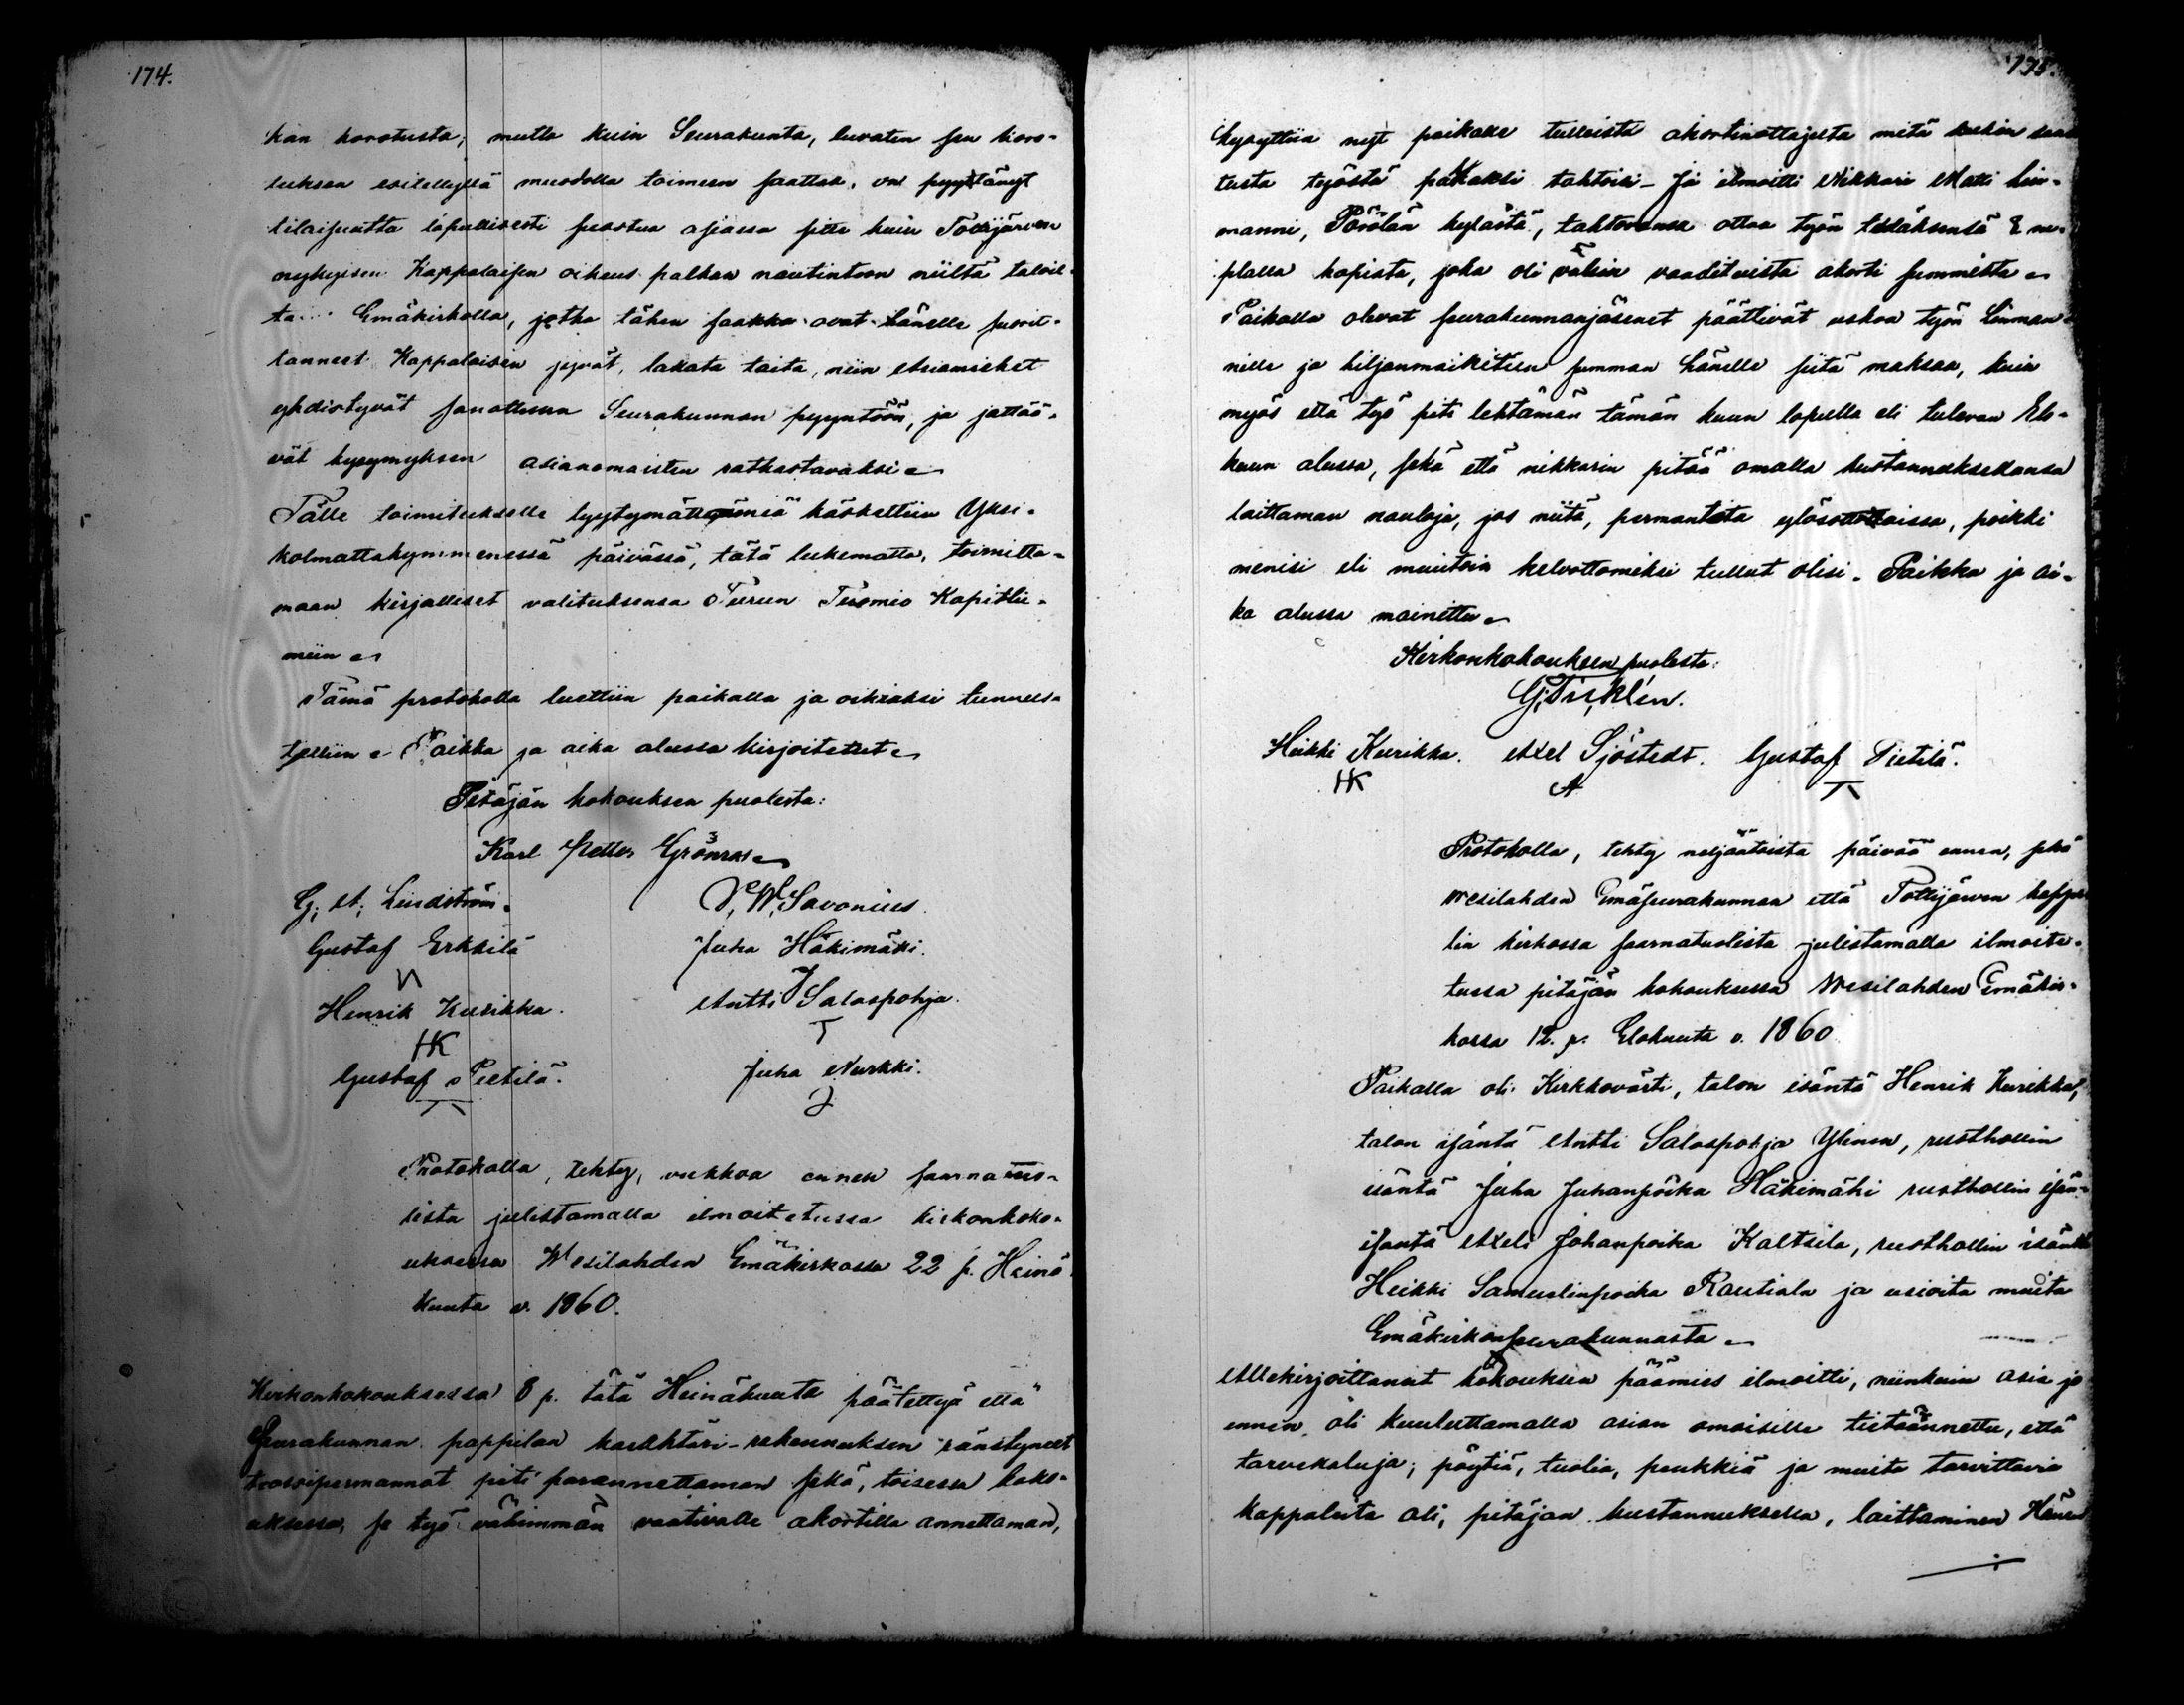 174.
kan korotusta; mutta kuin Seurakunta, luvaten sen koro-
tuksen esitellyllä muodolla toimeen saattaa, on pyytänyt
tilaisuutta lopullisesti suostua asiassa sitte kuin Tottijärven
nykyisen Kappalaisen oikeus palkan nautintoon niiltä taloil-
ta Emäkirkolla, jotka tähän saakka ovat hänelle suorit-
tanneet Kappalaisen jyvät, lakata taita, niin etsiamiehet
yhdistyvät sanottuun Seurakunnan pyyntöön, ja jättää-
vät kysymyksen asianomaisten ratkastavaksi
Tälle toimitukselle tyytymättömiä käskettiin Yksi-
kolmattakymmenessä päivässä, tätä lukematta, toimitta-
maan kirjalliset valituksensa Turun Tuomio Kapitlu-
miin
Tämä protokolla luettiin paikalla ja oikiaksi tunnus-
tettiin Paikka ja aika alussa kirjoitetut
Pitäjän kokouksen puolesta:
Karl Petter Grönros
G. A. Lindström. V. W. Savonius.
Gustaf Erkkilä Juha Häkimäki.
Henrik Kurikka. Antti Salospohja.
HK
Gustaf Pietilä. Juha Nurkki.
Protokolla, tehty, viikkoa ennen saarnatuo-
lista julistamalla ilmoitetussa kirkonkoko-
uksessa Wesilahden Emäkirkossa 22 p. Heinä
kuuta v. 1860.
Kirkonkokouksessa 8 p. tätä Heinäkuuta päätettyä että
Seurakunnan pappilan karaktäri-rakennuksen ränstyneet
trossipermannot piti parannettaman sekä, toisessa koko-
uksessa, se työ vähimmän vaativalle akortilla annettaman,
175.
kysyttiin nyt paikalle tulleista akortinottajilta mitä kukin
tusta työstä palkaksi tahtoisi - Ja ilmoitti Nikkari Matti Lin-
manni, Pörölän kylästä, tahtovansa ottaa työn tehdäksensä 8 ru-
plalla kopista, joka oli vähin vaadituista akorti summista
Paikalla olevat seurakunnanjäsenet päättivät uskoa työn Linman-
nille ja hiljanmaikitun summan hänelle siitä maksaa, kuin
myös että työ piti tehtämän tämän kuun lopulla eli tulevan Elo-
kuun alussa, sekä että nikkarin pitää omalla kustannuksellansa
laittaman nauloja, jos niitä, permantota ylösottaissa, poikki
menisi eli muutoin kelvottomiksi tullut olisi. Paikka ja ai-
ka alussa mainittu
Kirkonkokouksen puolesta:
Heikki Kurikka. Axel Sjöstedt. Gustaf Pietilä.
HK A
Protokolla, tehty neljäätoista päivää ennen, sekä
Wesilahden Emäseurakunnan että Tottijärven kappe
lin kirkossa saarnatuolista julistamalla ilmoite-
tussa pitäjän kokouksessa Wesilahden Emäkir-
kossa 12. p. Elokuuta v. 1860
Paikalla oli Kirkkovärti, talon isäntä Henrik Kurikka,
talon isäntä Antti Salospohja Ylinen, rusthollin
isäntä Juha Juhanpoika Häkimäki rusthollin isän-
isäntä Axeli Johanpoika Kaltsila, rusthollin isäntä
Heikki Samuelinpoika Rautiala ja usioita muita
Emäkirkonseurakunnasta
Allekirjoittanut kokouksen päämies ilmoitti, niinkuin asia jo
ennen oli kuuluttamalla asian omaisille tietäännettu, että
tarvekaluja; pöytiä, tuolia, penkkiä ja muita tarvittavia
kappaleita oli, pitäjän kustannuksella, laittaminen Hänen